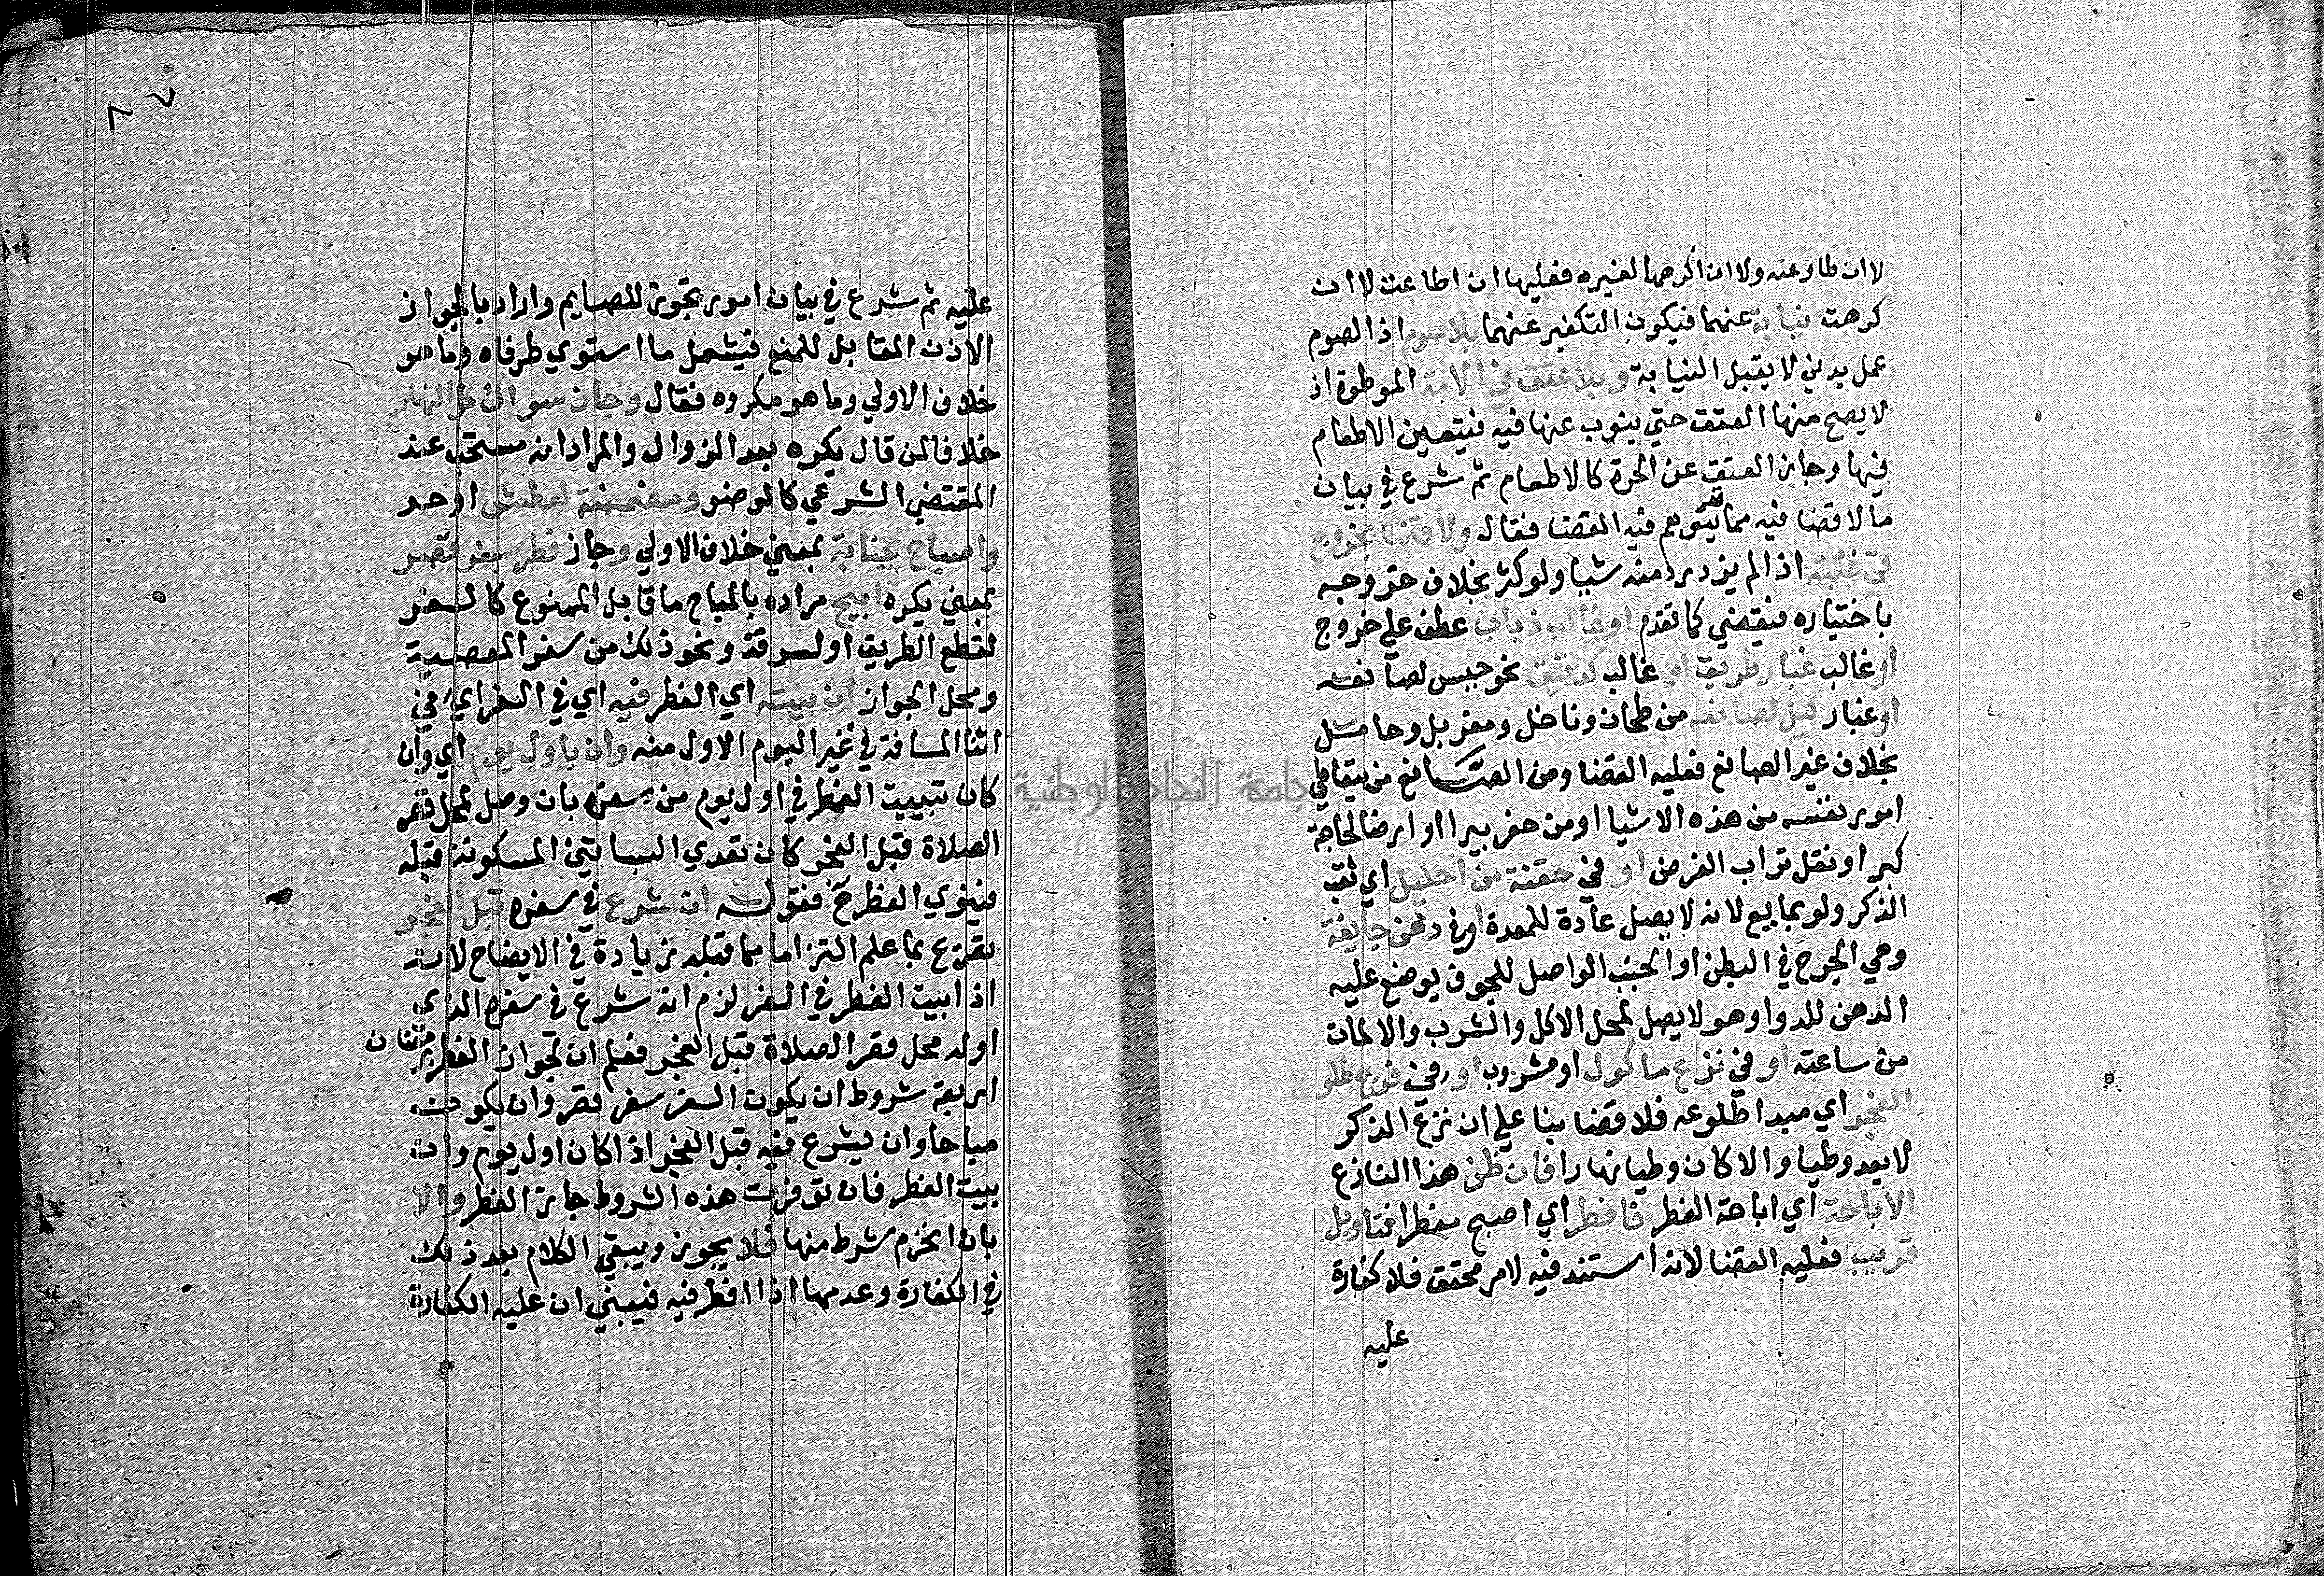 لا ان طاوعته ولا ان اكرهها لغيره فعليها ان اطاعت لا ان
كرهت نيابة عنهما فيكون التكفير عنهما بلا صوم اذ الصوم
عمل بدني لا يقبل النيابة وبلا عتق في الامة الموطوة اذ
لا يصح منها العتق حتي ينوب عنها فيه فيتعين الاطعام
فيها وجاز العتق عن الحرة كالاطعام ثم شرع في بيان
ما لا قضا فيه مما يتوهم فيه القضا فقال ولا قضا بخروج
قي غلبته اذا لم يزدرد منه شيا ولو كثر بخلاف خروجه
باختياره فيقضي كما تقدم او غالب ذباب عطف علي خروج
او غالب غبار طريق او غالب كدقيق نحو جبس لصانعه
او غبار كيل لصانعه من طحان وناخل ومغربل وحامل
بخلاف غير الصانع فعليه القضا ومن الصانع من يتعاطي
امور نفسه من هذه الاشيا او من حفر بيرا او ارضا لحاجة
كبر او نقل تراب الغرض او في حقنة من احليل اي ثقب
الذكر ولو بمايع لانه لا يصل عادة للمعدة او في دهن جايفة
وهي الجرح في البطن او الجنب الواصل للجوف يوضع عليه
الدهن للدوا وهو لا يصل لمحل الاكل والشرب والا لمات
من ساعته او في نزع ماكول او مشروب او فرج طلوع
الفجر اي مبدا طلوعه فلا قضا بنا علي ان نزع الذكر
لا يعد وطيا والا كان وطيا نهارا فان ظن هذا النازع
الاباحة اي اباحة الفطر فافطر اي اصبح مفطرا فتاويل
قريب فعليه القضا لانه استند فيه لامر محقق فلا كفارة
عليه
عليه ثم شرع في بيان امور تجوز للصايم واراد بالجواز
الاذن المقابل للمنع فيشمل ما استوي طرفاه وما هو
خلاف الاولي وما هو مكروه فقال وجاز سواك كل النهار
خلافا لمن قال يكره بعد الزوال والمراد انه مستحب عند
المقتضي الشرعي كالوضو ومضمضة لعطش او حر
واصباح بجنابة بمعني خلاف الاولي وجاز فطر بسفر قصر
بمعني يكره ابيح مراده بالمباح ما قابل الممنوع كالسفر
لقطع الطريق او لسرقة ونحو ذلك من سفر المعصية
ومحل الجواز ان بيته اي الفطر فيه اي في السفر اي في
اثنا المسافة في غير اليوم الاول منه وان باول يوم اي وان
كان تبييت الفطر في اول يوم من سفره بان وصل لمحل قصر
الصلاة قبل الفجر كان تعدي البساتين المسكونة قبله
فينوي الفطر ح فقوله ان شرع في سفره قبل الفجر
تصريح بما علم التزاما مما قبله زيادة في الايضاح لانه
اذا بيت الفطر في السفر لزم انه شرع في سفره الذي
اوله محل قصر الصلاة قبل الفجر فعلم ان لجواز الفطر برمضان
اربعة شروط ان يكون السفر سفر قصر وان يكون
مباحا وان يشرع فيه قبل الفجر اذا كان اول يوم وان
يبيت الفطر فان توفرت هذه الشروط جاز الفطر والا
بان انخرم شرط منها فلا يجوز ويبقي الكلام بعد ذلك
في الكفارة وعدمها اذا افطر فيه فيبني ان عليه الكفارة
جامعة النجاح الوطنية